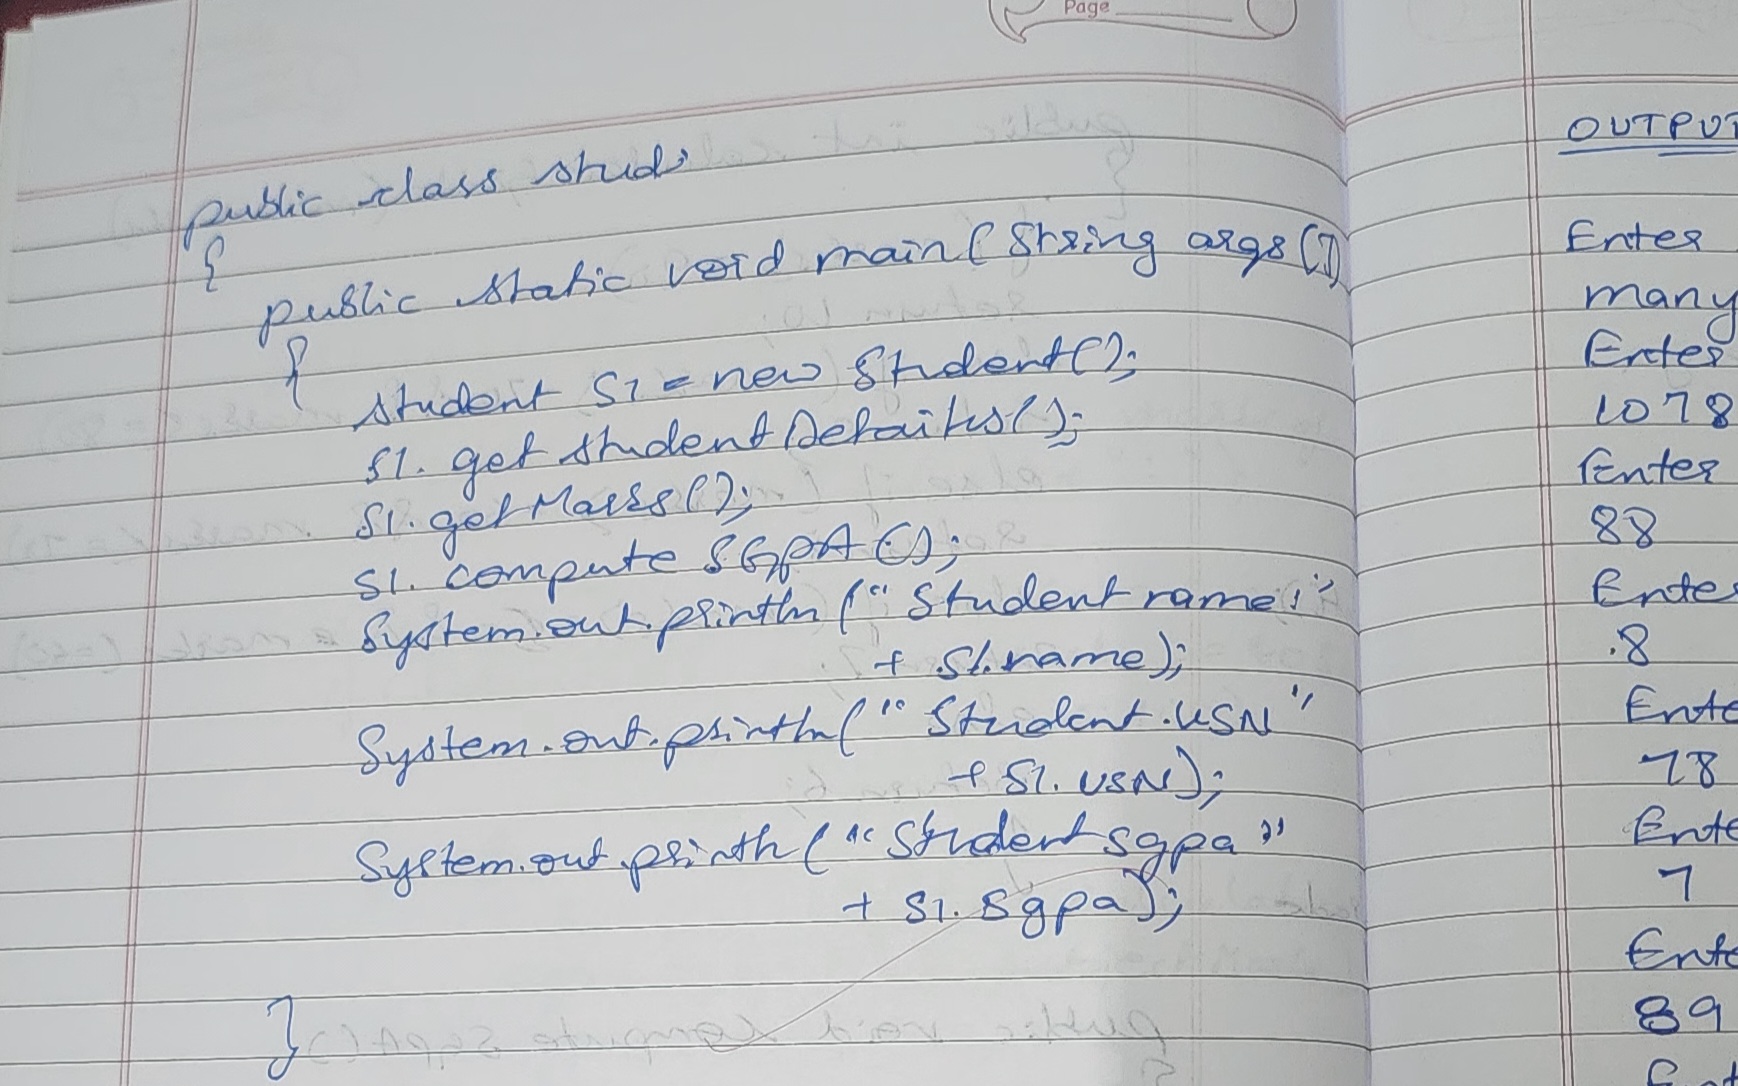 Page
public class stud
{
public static void main(String args[])
{
student S1 = new Student();
S1. get studentDetails();
S1. getMarks();
S1. compute SGPA();
System.out.println("Student name:"
+ S1.name);
System.out.println("Student.USN"
+ S1. USN);
System.out.println("Student sgpa"
+ S1. Sgpa);
}
OUTPUT
Enter
many
Enter
1078
Enter
88
Enter
.8
Ente
78
Ente
7
Ente
89